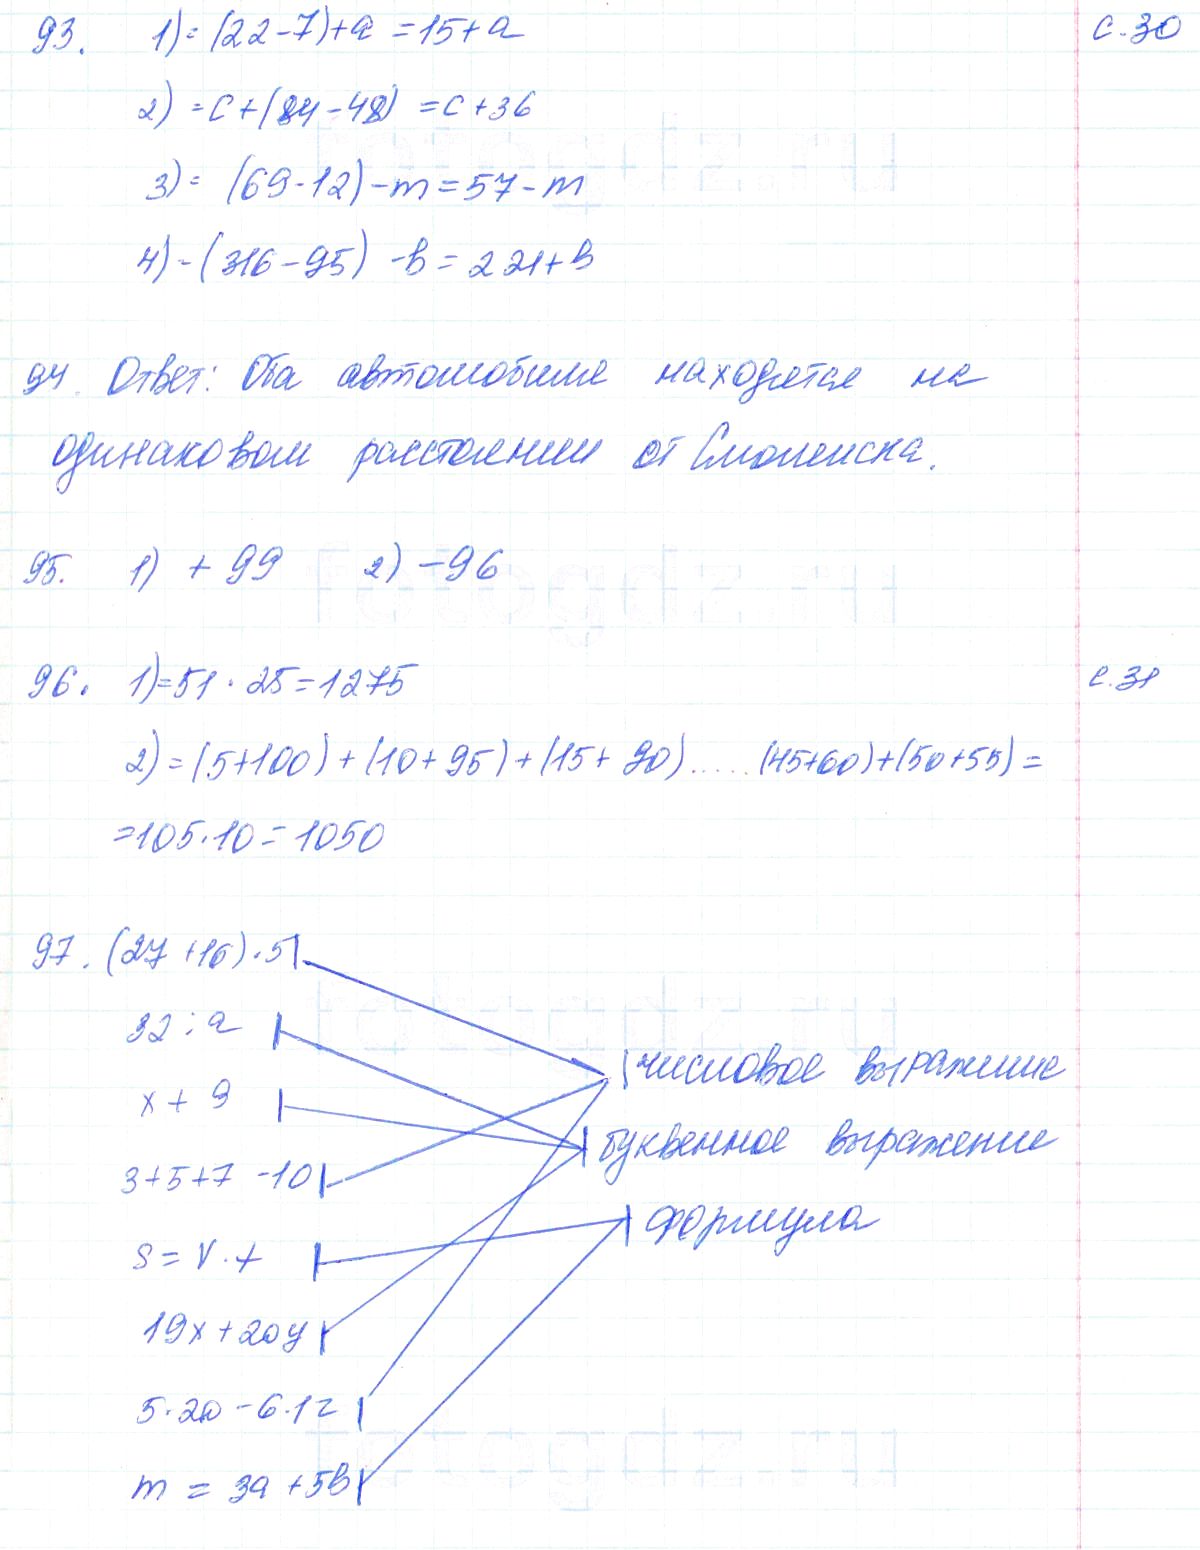 93. 1) = (22-7)+a = 15+a
с.30
2) = c+(84-48) = c+36
3) = (69-12)-m = 57-m
4) - (316-95) -b = 221+b
94. Ответ: Оба автомобиле находятся на
одинаковом расстоянии от Смоленска.
95. 1) + 99 2) - 96
96. 1) = 51 · 25 = 1275
с.31
2) = (5+100)+(10+95)+(15+90)..... (45+60)+(50+55) =
= 105·10 = 1050
97. (27+16)·5
32 : a
числовое выражение
x + 9
буквенное выражение
3+5+7-10
формула
s = V · t
19x+20y
5·20-6·12
m = 3a+5b
fotogdz.ru
fotogdz.ru
fotogdz.ru
fotogdz.ru